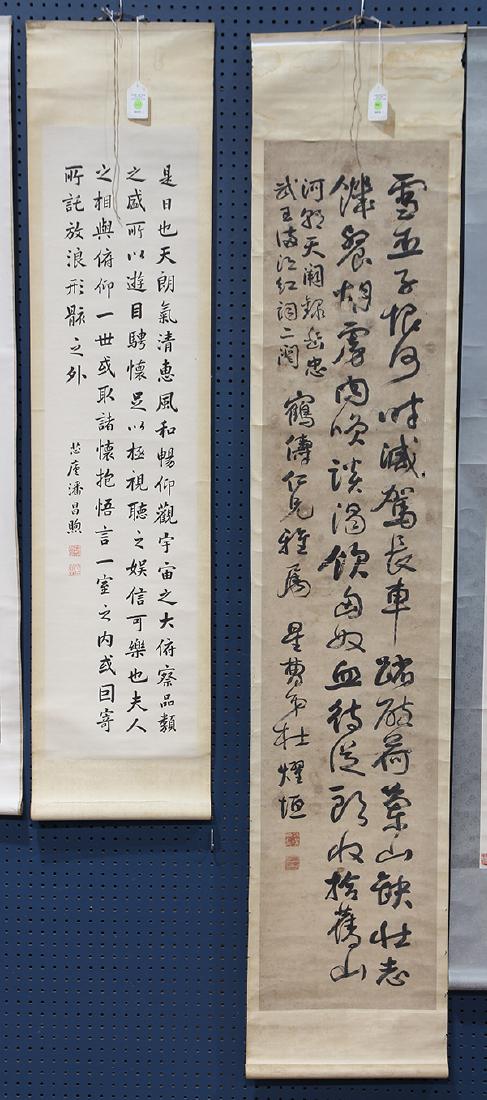 雪臣子恨何時滅駕長車踏破賀蘭山缺壯志
饑餐胡虜肉笑談渴飲匈奴血待從頭收拾舊山
河朝天闕錄岳忠
武王滿江紅詞二闋
鶴儔仁兄雅屬 星曹弟杜燿垣
是日也天朗氣清惠風和暢仰觀宇宙之大俯察品類
之盛所以遊目騁懷足以極視聽之娛信可樂也夫人
之相與俯仰一世或取諸懷抱悟言一室之內或因寄
所託放浪形骸之外
芯廬潘昌煦